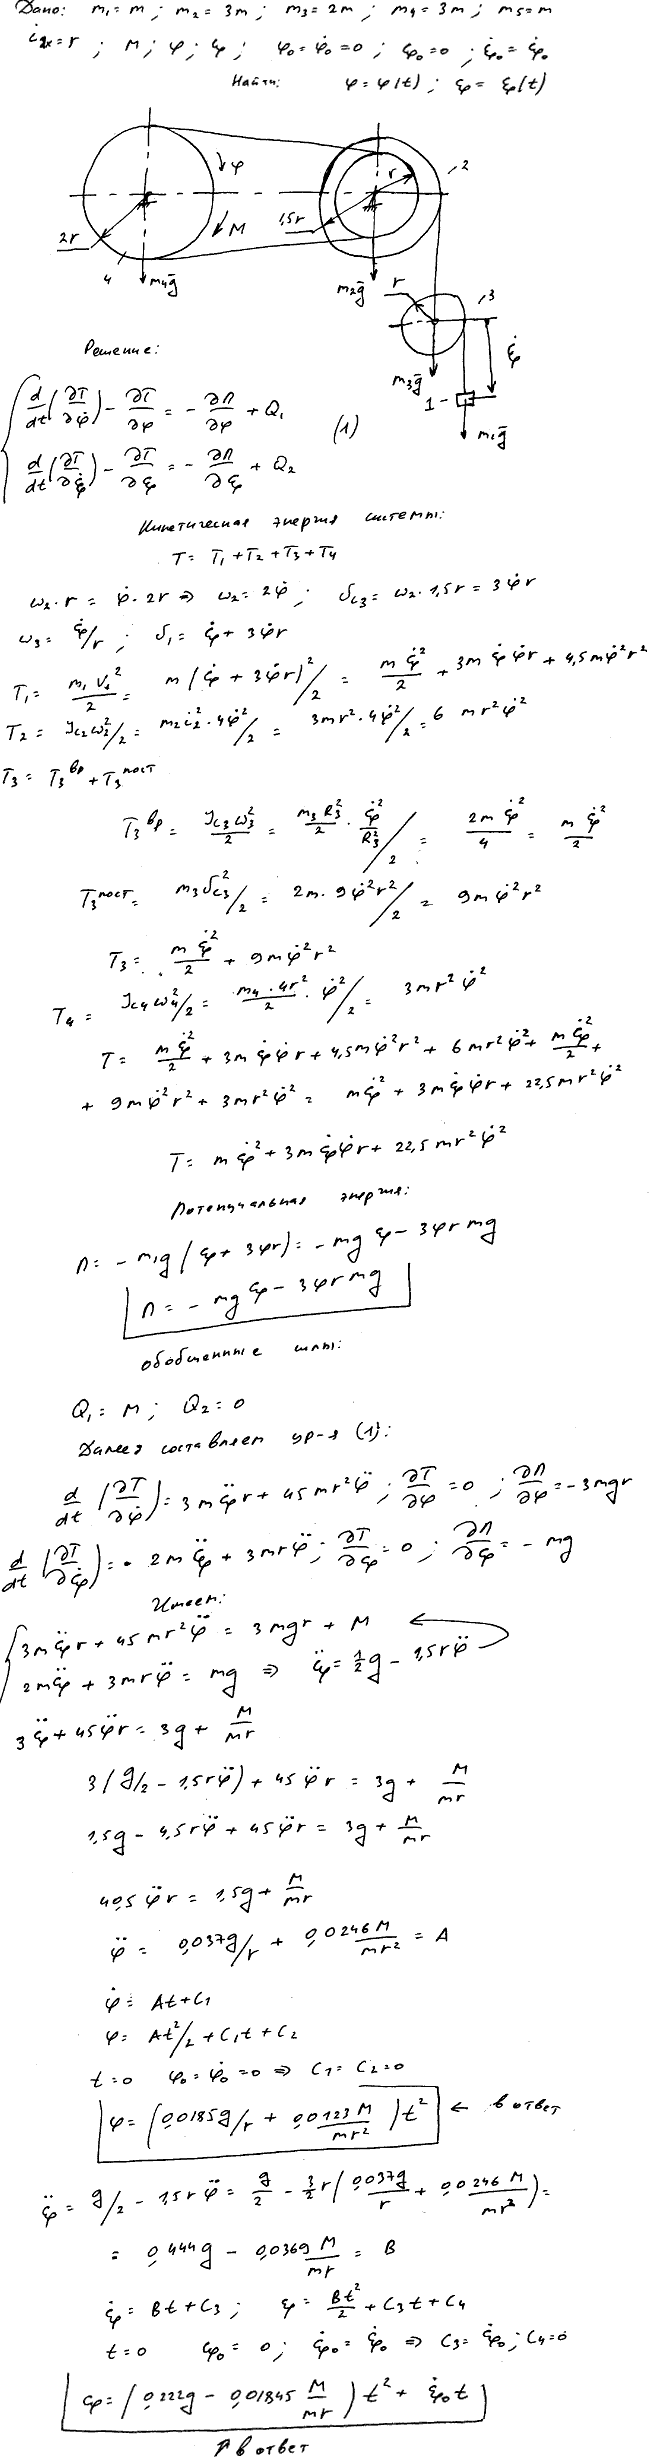 Дано: m₁ = m ; m₂ = 3m ; m₃ = 2m ; m₄ = 3m ; m₅ = m
i₂ₓ = r ; M ; φ ; ξ ; φ₀ = φ̇₀ = 0 ; ξ₀ = 0 ; ξ̇₀ = ξ̇₀
Найти: φ = φ(t) ; ξ = ξ(t)
φ
r
2
M
1,5r
2r
4
m₄g̅
m₂g̅
r
3
ξ
m₃g̅
1
m₁g̅
Решение:
d/dt (∂T/∂φ̇) - ∂T/∂φ = - ∂П/∂φ + Q₁
(1)
d/dt (∂T/∂ξ̇) - ∂T/∂ξ = - ∂П/∂ξ + Q₂
Кинетическая энергия системы:
T = T₁ + T₂ + T₃ + T₄
ω₂ · r = φ̇ · 2r ⇒ ω₂ = 2φ̇ ; υ_C3 = ω₂ · 1,5r = 3φ̇r
ω₃ = ξ̇/r ; υ₁ = ξ̇ + 3φ̇r
T₁ = m₁V₁²/2 = m(ξ̇ + 3φ̇r)²/2 = mξ̇²/2 + 3mξ̇φ̇r + 4,5mφ̇²r²
T₂ = J_C2 ω₂²/2 = m₂i₂² · 4φ̇²/2 = 3mr² · 4φ̇²/2 = 6 mr²φ̇²
T₃ = T₃ᵇᵖ + T₃ᵖᵒˢᵗ
T₃ᵇᵖ = J_C3 ω₃²/2 = m₃R₃²/2 · ξ̇²/R₃² /2 = 2mξ̇²/4 = mξ̇²/2
T₃ᵖᵒˢᵗ = m₃υ_C3²/2 = 2m · 9φ̇²r²/2 = 9mφ̇²r²
T₃ = mξ̇²/2 + 9mφ̇²r²
T₄ = J_C4 ω₄²/2 = m₄ · 4r²/2 · φ̇²/2 = 3mr²φ̇²
T = mξ̇²/2 + 3mξ̇φ̇r + 4,5mφ̇²r² + 6mr²φ̇² + mξ̇²/2 +
+ 9mφ̇²r² + 3mr²φ̇² = mξ̇² + 3mξ̇φ̇r + 22,5mr²φ̇²
T = mξ̇² + 3mξ̇φ̇r + 22,5mr²φ̇²
Потенциальная энергия:
П = - m₁g(ξ + 3φr) = - mgξ - 3φrmg
П = - mgξ - 3φrmg
Обобщенные силы:
Q₁ = M ; Q₂ = 0
Далее составляем ур-я (1):
d/dt (∂T/∂φ̇) = 3mξ̈r + 45mr²φ̈ ; ∂T/∂φ = 0 ; ∂П/∂φ = - 3mgr
d/dt (∂T/∂ξ̇) = 2mξ̈ + 3mrφ̈ ; ∂T/∂ξ = 0 ; ∂П/∂ξ = - mg
Имеем:
3mξ̈r + 45mr²φ̈ = 3mgr + M
2mξ̈ + 3mrφ̈ = mg ⇒ ξ̈ = 1/2 g - 1,5rφ̈
3ξ̈ + 45φ̈r = 3g + M/mr
3(g/2 - 1,5rφ̈) + 45φ̈r = 3g + M/mr
1,5g - 4,5rφ̈ + 45φ̈r = 3g + M/mr
40,5φ̈r = 1,5g + M/mr
φ̈ = 0,037g/r + 0,0246M/mr² = A
φ̇ = At + C₁
φ = At²/2 + C₁t + C₂
t = 0 φ₀ = φ̇₀ = 0 ⇒ C₁ = C₂ = 0
φ = (0,0185g/r + 0,0123M/mr²)t² ← в ответ
ξ̈ = g/2 - 1,5rφ̈ = g/2 - 3/2 r(0,037g/r + 0,0246M/mr²) =
= 0,444g - 0,0369 M/mr = B
ξ̇ = Bt + C₃ ; ξ = Bt²/2 + C₃t + C₄
t = 0 ξ₀ = 0 ; ξ̇₀ = ξ̇₀ ⇒ C₃ = ξ̇₀ ; C₄ = 0
ξ = (0,222g - 0,01845 M/mr)t² + ξ̇₀t
↑ в ответ